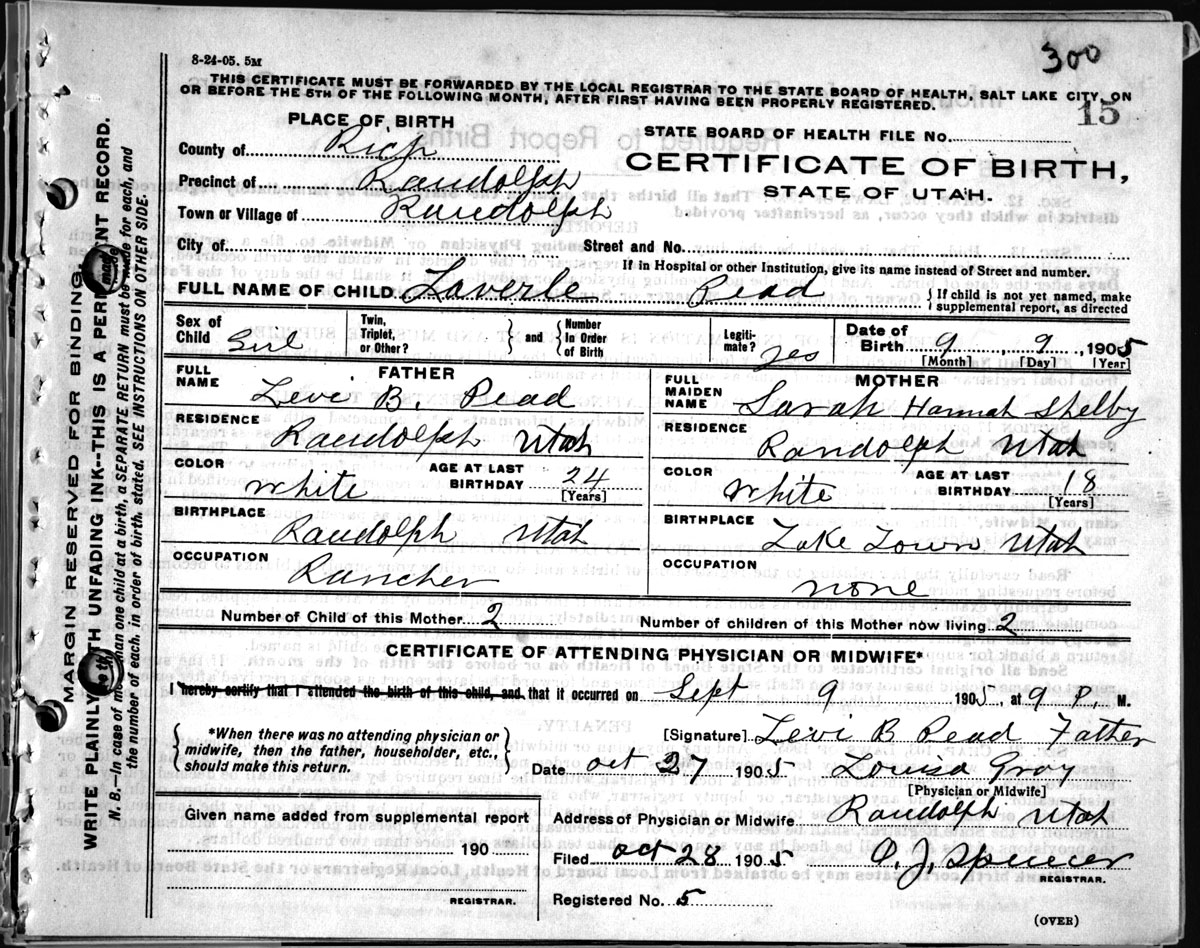 8-24-05. 5M
300
THIS CERTIFICATE MUST BE FORWARDED BY THE LOCAL REGISTRAR TO THE STATE BOARD OF HEALTH, SALT LAKE CITY, ON
OR BEFORE THE 5TH OF THE FOLLOWING MONTH, AFTER FIRST HAVING BEEN PROPERLY REGISTERED.
15
PLACE OF BIRTH
STATE BOARD OF HEALTH FILE No.
County of Rich
CERTIFICATE OF BIRTH,
Precinct of Randolph
STATE OF UTAH.
Town or Village of Randolph
City of
Street and No.
If in Hospital or other Institution, give its name instead of Street and number.
FULL NAME OF CHILD Laverle Read
If child is not yet named, make
supplemental report, as directed
Sex of Child Girl
Twin, Triplet, or Other?
and
Number In Order of Birth
Legiti-mate? yes
Date of Birth 9, 9, 1905
[Month] [Day] [Year]
FATHER
FULL NAME Levi B. Read
RESIDENCE Randolph Utah
COLOR White
AGE AT LAST BIRTHDAY 24 [Years]
BIRTHPLACE Randolph Utah
OCCUPATION Rancher
MOTHER
FULL MAIDEN NAME Sarah Hannah Shelby
RESIDENCE Randolph Utah
COLOR White
AGE AT LAST BIRTHDAY 18 [Years]
BIRTHPLACE Lake Town Utah
OCCUPATION none
Number of Child of this Mother 2
Number of children of this Mother now living 2
CERTIFICATE OF ATTENDING PHYSICIAN OR MIDWIFE*
I hereby certify that I attended the birth of this child, and that it occurred on Sept 9 1905, at 9 P. M.
*When there was no attending physician or
midwife, then the father, householder, etc.,
should make this return.
[Signature] Levi B Read Father
Date Oct 27 1905 Louisa Gray
[Physician or Midwife]
Given name added from supplemental report
190
REGISTRAR.
Address of Physician or Midwife Randolph Utah
Filed Oct 28 1905 O. J. Spencer
REGISTRAR.
Registered No. 5
(OVER)
MARGIN RESERVED FOR BINDING
WRITE PLAINLY WITH UNFADING INK--THIS IS A PERMANENT RECORD.
N. B.--In case of more than one child at a birth, a SEPARATE RETURN must be made for each, and
the number of each, in order of birth, stated. SEE INSTRUCTIONS ON OTHER SIDE.